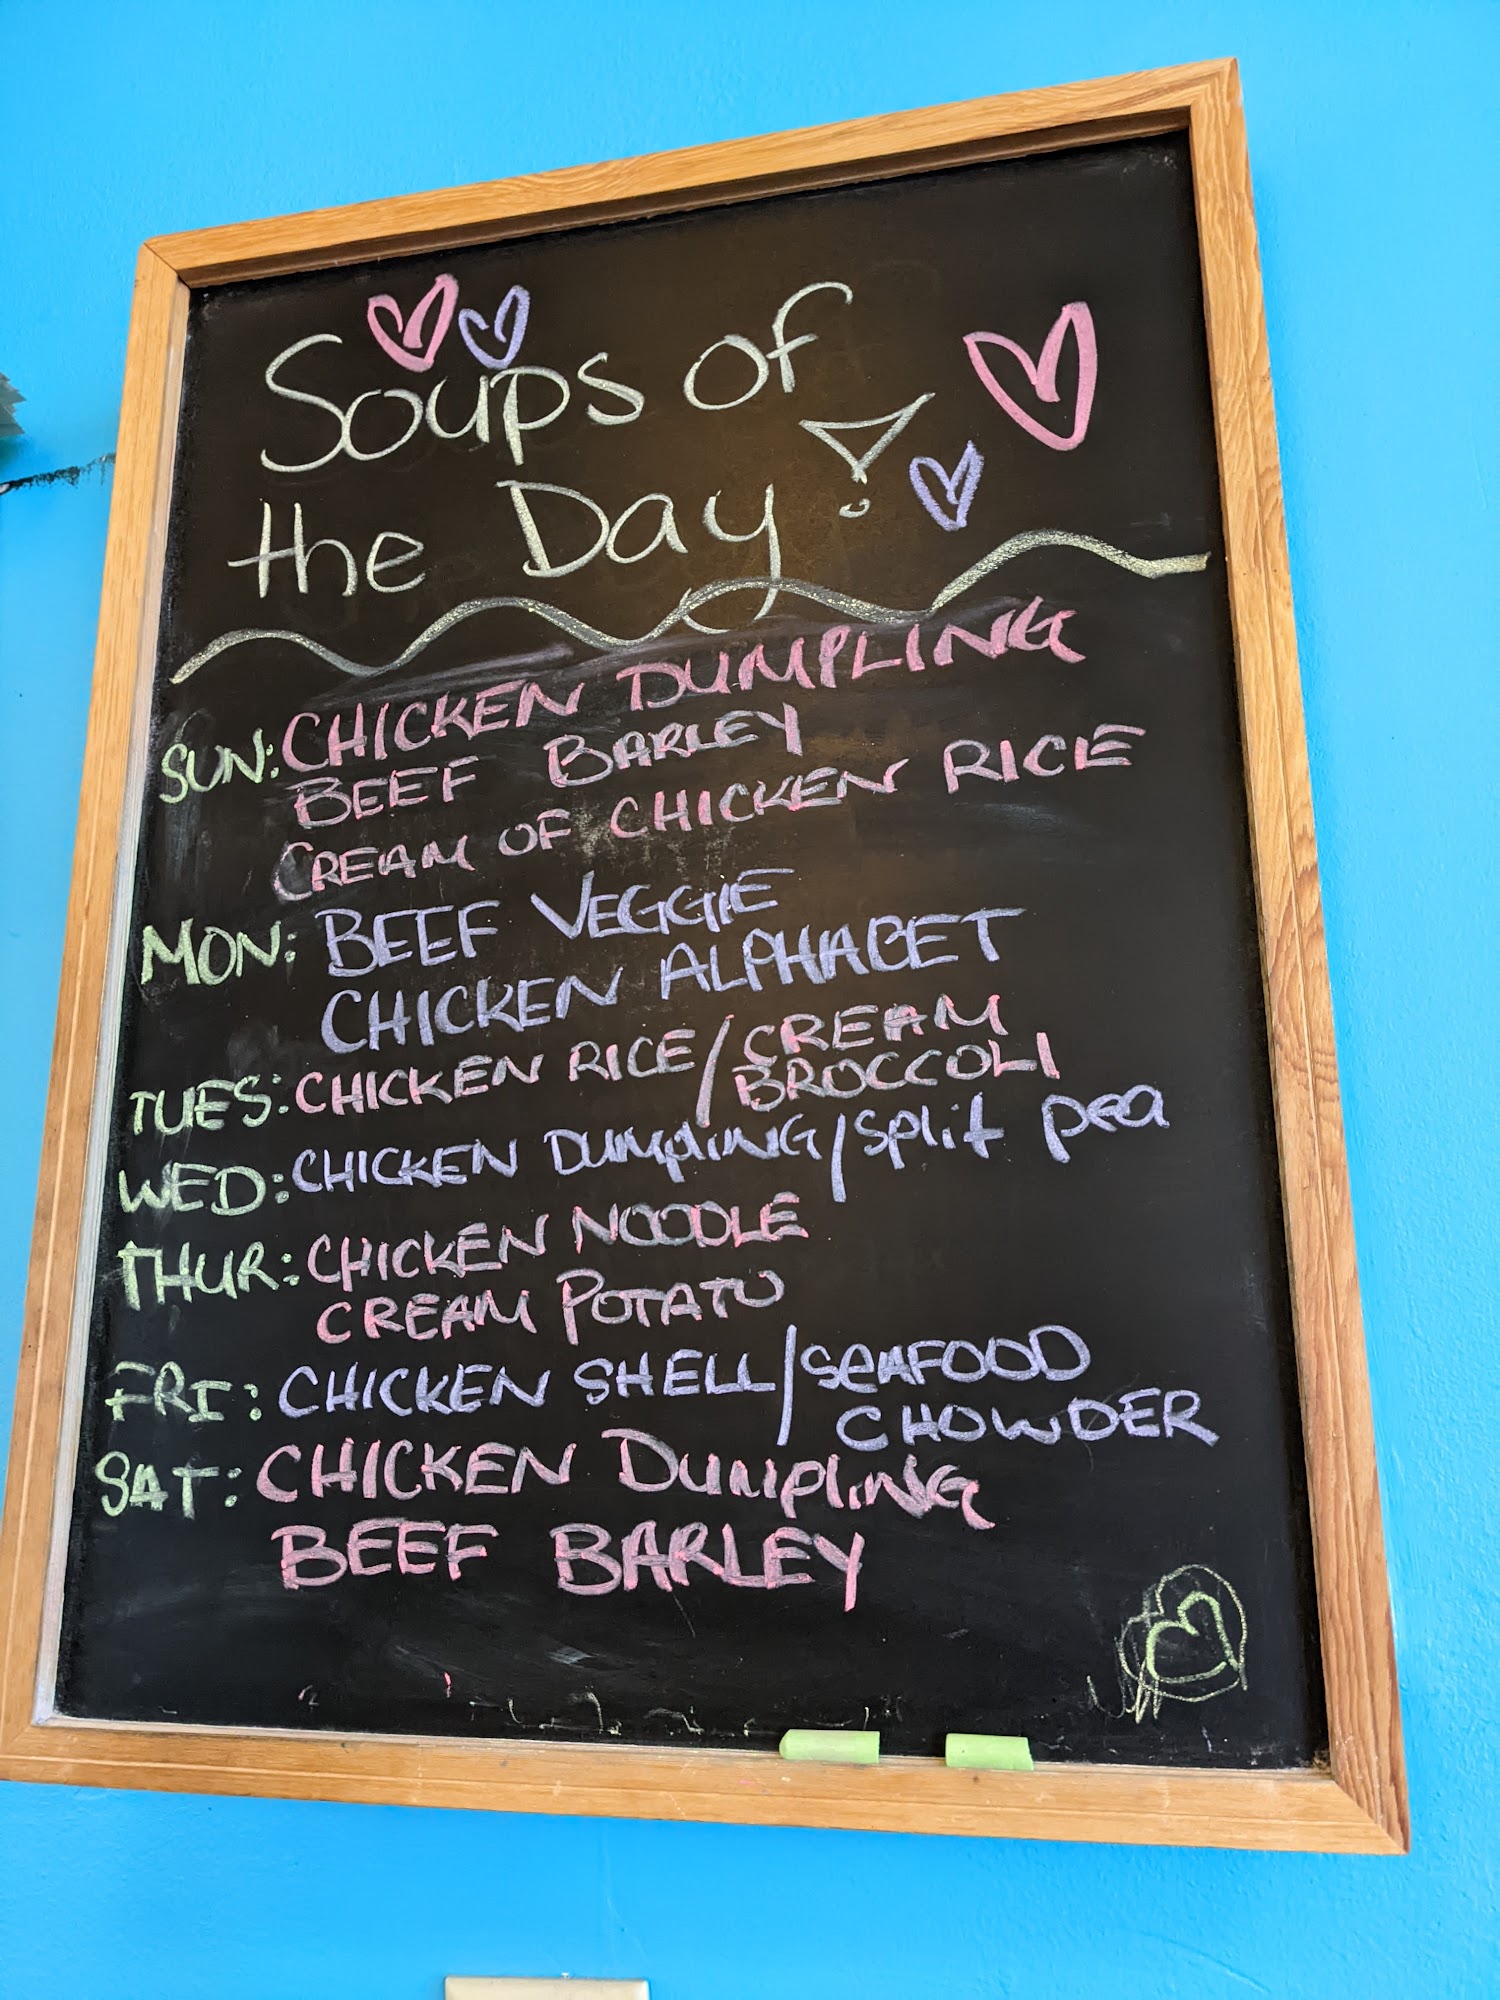 Soups of
the Day!
SUN: CHICKEN DUMPLING
BEEF BARLEY
CREAM OF CHICKEN RICE
MON: BEEF VEGGIE
CHICKEN ALPHABET
TUES: CHICKEN RICE/CREAM
BROCCOLI
WED: CHICKEN DUMPLING/split pea
THUR: CHICKEN NOODLE
CREAM POTATO
FRI: CHICKEN SHELL/SEAFOOD
CHOWDER
SAT: CHICKEN DUMPLING
BEEF BARLEY